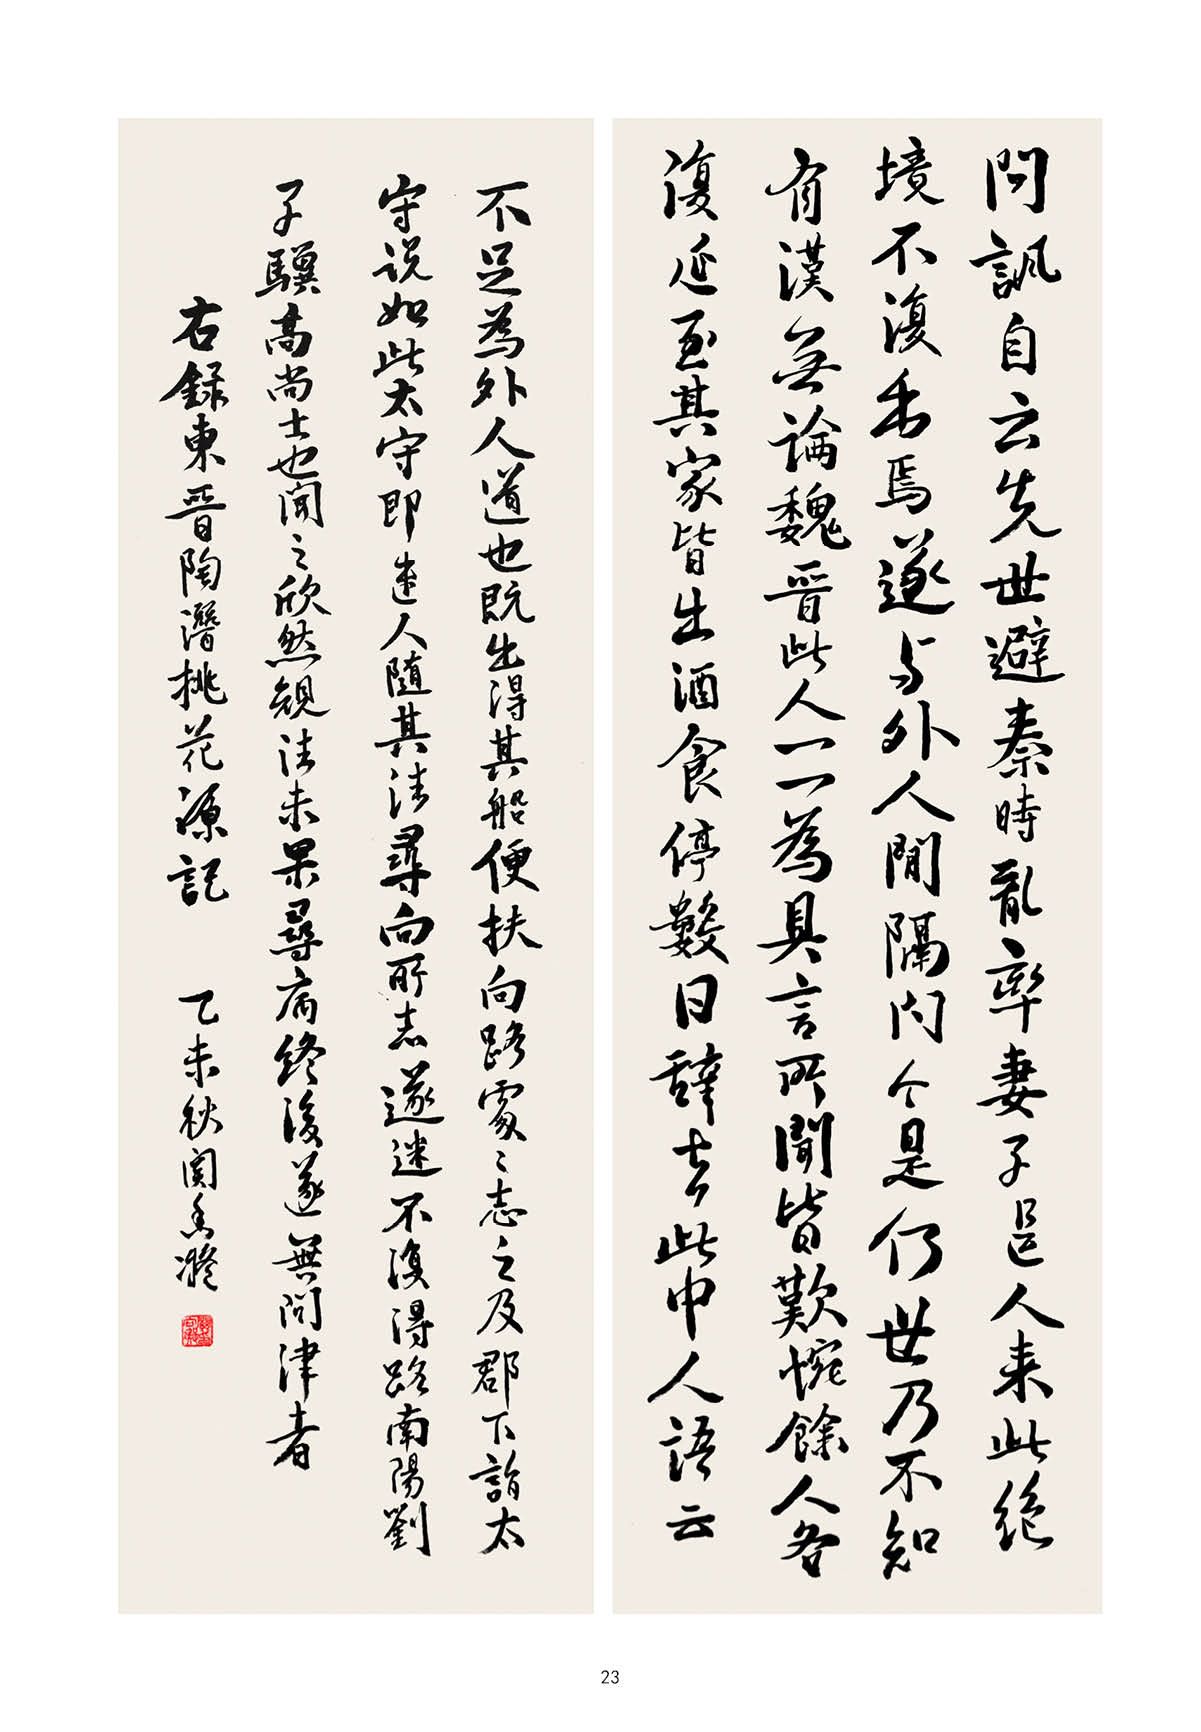 問訊自云先世避秦時亂率妻子邑人来此絶
境不復出焉遂与外人間隔問今是何世乃不知
有漢無論魏晋此人一一為具言所聞皆歎惋餘人各
復延至其家皆出酒食停數日辭去此中人語云
不足為外人道也既出得其船便扶向路處〻志之及郡下詣太
守説如此太守即遣人随其往尋向所志遂迷不復得路南陽劉
子驥高尚士也聞之欣然規往未果尋病終後遂無問津者
右録東晋陶潛桃花源記 乙未秋関秀
23